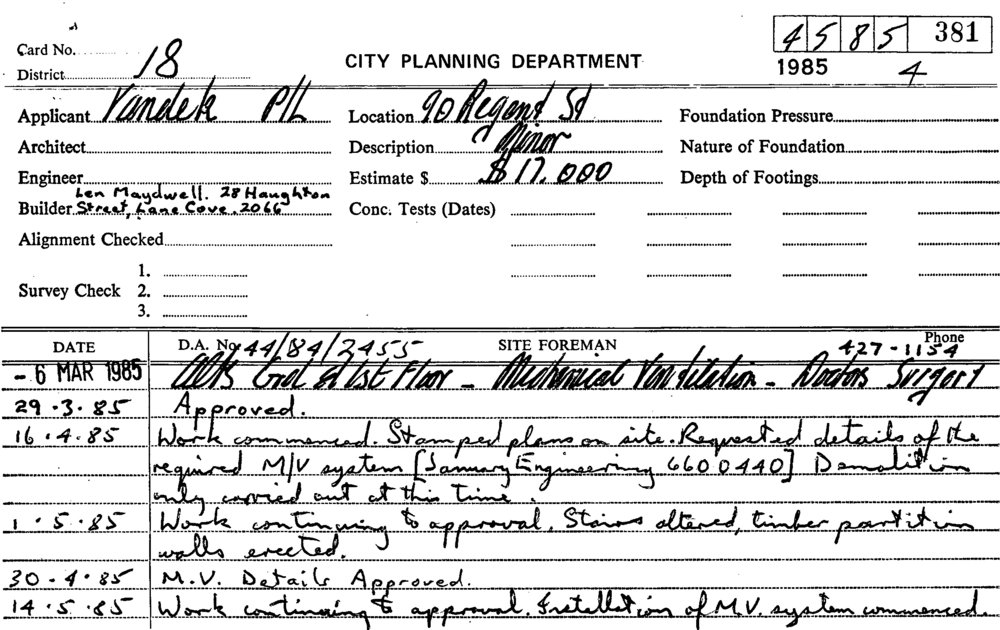 4585 381
Card No.
District 18
CITY PLANNING DEPARTMENT
1985 4
Applicant Vandek P/L
Location 90 Regent St
Foundation Pressure
Architect
Description Minor
Nature of Foundation
Engineer
Estimate $ $17.000
Depth of Footings
Len Maydwell. 28 Haughton
Builder Street, Lane Cove. 2066
Conc. Tests (Dates)
Alignment Checked
1.
Survey Check 2.
3.
DATE D.A. No. 44/84/2455 SITE FOREMAN Phone 427-1154
- 6 MAR 1985 Alts Grd & 1st Floor - Mechanical Ventilation - Doctors Surgery
29.3.85 Approved.
16.4.85 Work commenced. Stamped plans on site. Requested details of the
required M/V system [January Engineering 6600440] Demolition
only carried out at this time.
1.5.85 Work continuing to approval. Stairs altered, timber partition
walls erected.
30-4.85 M.V. Details Approved.
14.5.85 Work continuing to approval. Installation of M.V. system commenced.